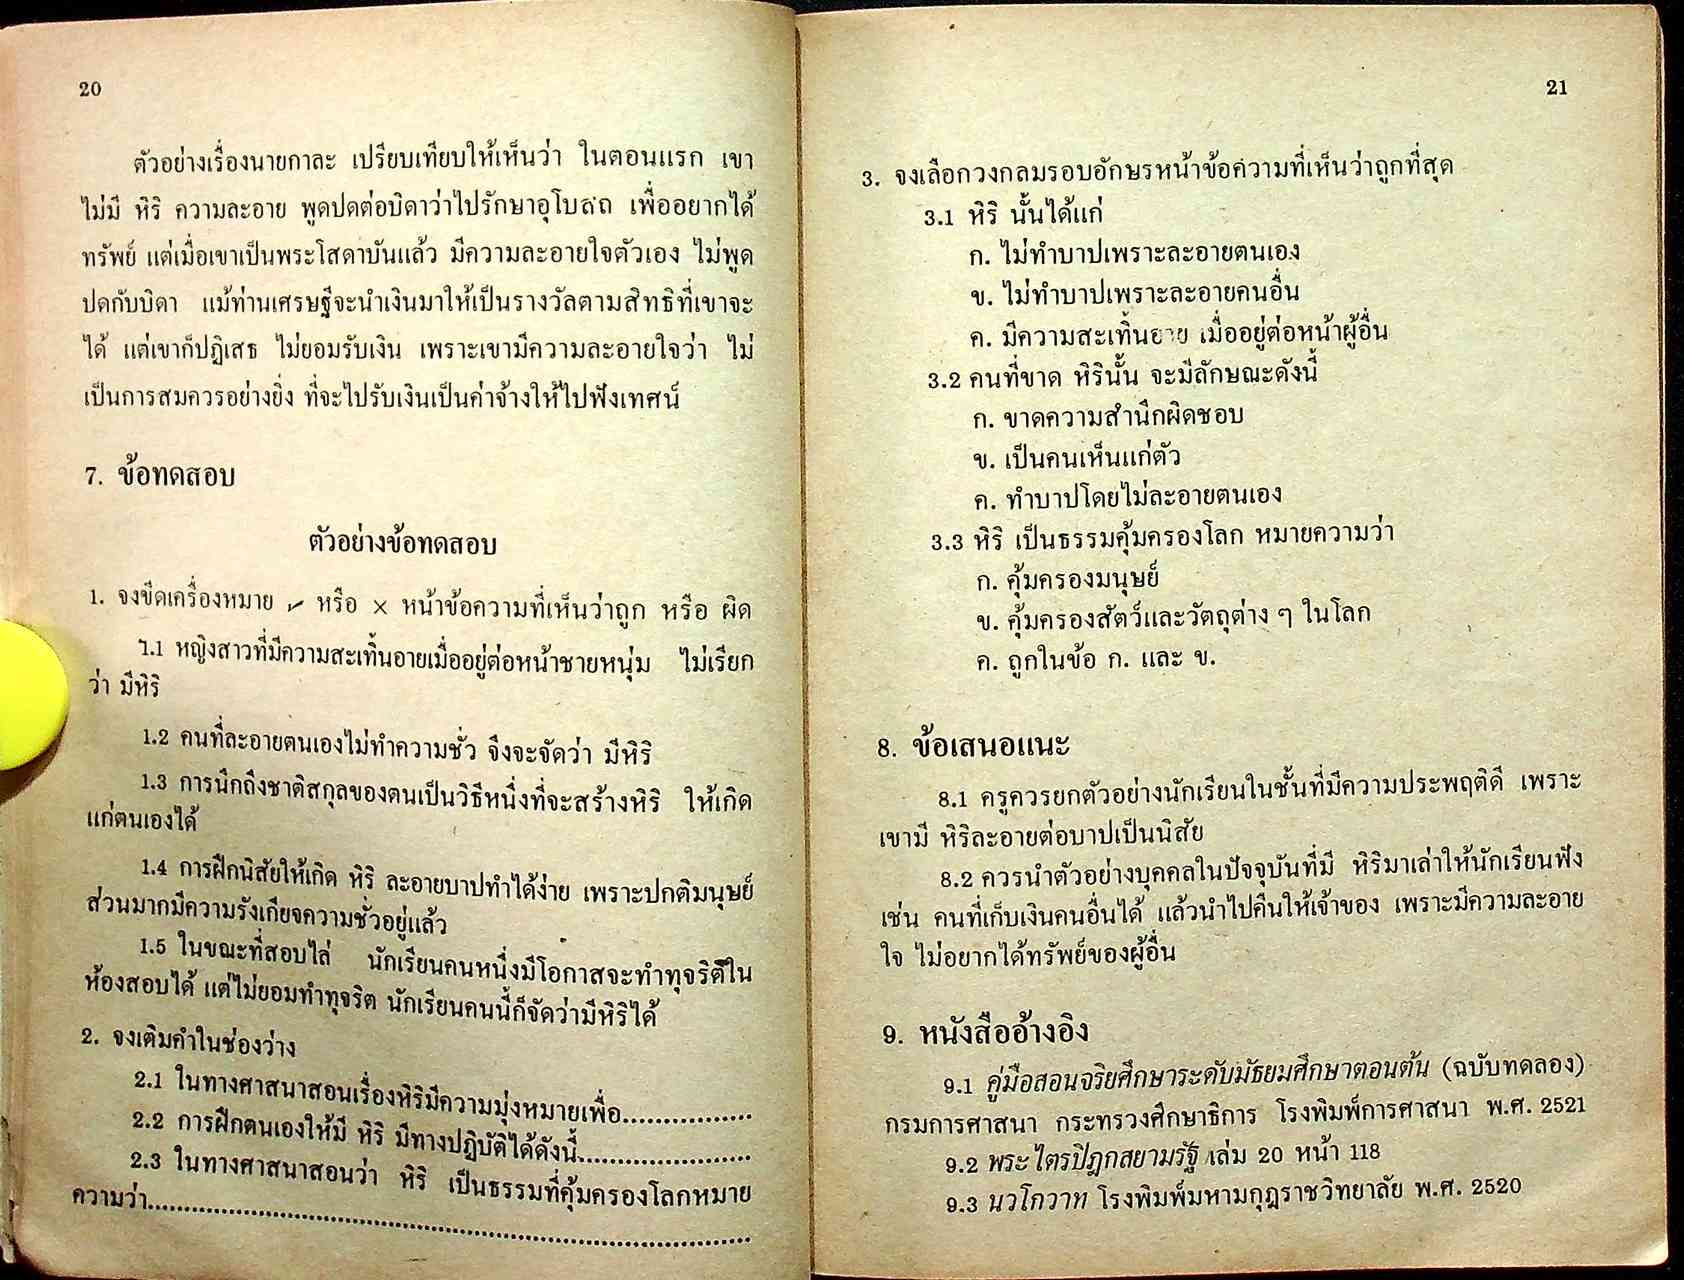 20
ตัวอย่างเรื่องนายกาละ เปรียบเทียบให้เห็นว่า ในตอนแรก เขา
ไม่มี หิริ ความละอาย พูดปดต่อบิดาว่าไปรักษาอุโบสถ เพื่ออยากได้
ทรัพย์ แต่เมื่อเขาเป็นพระโสดาบันแล้ว มีความละอายใจตัวเอง ไม่พูด
ปดกับบิดา แม้ท่านเศรษฐีจะนำเงินมาให้เป็นรางวัลตามสิทธิที่เขาจะ
ได้ แต่เขาก็ปฏิเสธ ไม่ยอมรับเงิน เพราะเขามีความละอายใจว่า ไม่
เป็นการสมควรอย่างยิ่ง ที่จะไปรับเงินเป็นค่าจ้างให้ไปฟังเทศน์
7. ข้อทดสอบ
ตัวอย่างข้อทดสอบ
1. จงขีดเครื่องหมาย ✓ หรือ × หน้าข้อความที่เห็นว่าถูก หรือ ผิด
1.1 หญิงสาวที่มีความสะเทิ้นอายเมื่ออยู่ต่อหน้าชายหนุ่ม ไม่เรียก
ว่า มีหิริ
1.2 คนที่ละอายตนเองไม่ทำความชั่ว จึงจะจัดว่า มีหิริ
1.3 การนึกถึงชาติสกุลของตนเป็นวิธีหนึ่งที่จะสร้างหิริ ให้เกิด
แก่ตนเองได้
1.4 การฝึกนิสัยให้เกิด หิริ ละอายบาปทำได้ง่าย เพราะปกติมนุษย์
ส่วนมากมีความรังเกียจความชั่วอยู่แล้ว
1.5 ในขณะที่สอบไล่ นักเรียนคนหนึ่งมีโอกาสจะทำทุจริตใน
ห้องสอบได้ แต่ไม่ยอมทำทุจริต นักเรียนคนนี้ก็จัดว่ามีหิริได้
2. จงเติมคำในช่องว่าง
2.1 ในทางศาสนาสอนเรื่องหิริมีความมุ่งหมายเพื่อ................
2.2 การฝึกตนเองให้มี หิริ มีทางปฏิบัติได้ดังนี้......................
2.3 ในทางศาสนาสอนว่า หิริ เป็นธรรมที่คุ้มครองโลกหมาย
ความว่า..............................................................................
21
3. จงเลือกวงกลมรอบอักษรหน้าข้อความที่เห็นว่าถูกที่สุด
3.1 หิริ นั้นได้แก่
ก. ไม่ทำบาปเพราะละอายตนเอง
ข. ไม่ทำบาปเพราะละอายคนอื่น
ค. มีความสะเทิ้นอาย เมื่ออยู่ต่อหน้าผู้อื่น
3.2 คนที่ขาด หิรินั้น จะมีลักษณะดังนี้
ก. ขาดความสำนึกผิดชอบ
ข. เป็นคนเห็นแก่ตัว
ค. ทำบาปโดยไม่ละอายตนเอง
3.3 หิริ เป็นธรรมคุ้มครองโลก หมายความว่า
ก. คุ้มครองมนุษย์
ข. คุ้มครองสัตว์และวัตถุต่าง ๆ ในโลก
ค. ถูกในข้อ ก. และ ข.
8. ข้อเสนอแนะ
8.1 ครูควรยกตัวอย่างนักเรียนในชั้นที่มีความประพฤติดี เพราะ
เขามี หิริละอายต่อบาปเป็นนิสัย
8.2 ควรนำตัวอย่างบุคคลในปัจจุบันที่มี หิริมาเล่าให้นักเรียนฟัง
เช่น คนที่เก็บเงินคนอื่นได้ แล้วนำไปคืนให้เจ้าของ เพราะมีความละอาย
ใจ ไม่อยากได้ทรัพย์ของผู้อื่น
9. หนังสืออ้างอิง
9.1 คู่มือสอนจริยศึกษาระดับมัธยมศึกษาตอนต้น (ฉบับทดลอง)
กรมการศาสนา กระทรวงศึกษาธิการ โรงพิมพ์การศาสนา พ.ศ. 2521
9.2 พระไตรปิฎกสยามรัฐ เล่ม 20 หน้า 118
9.3 นวโกวาท โรงพิมพ์มหามกุฎราชวิทยาลัย พ.ศ. 2520